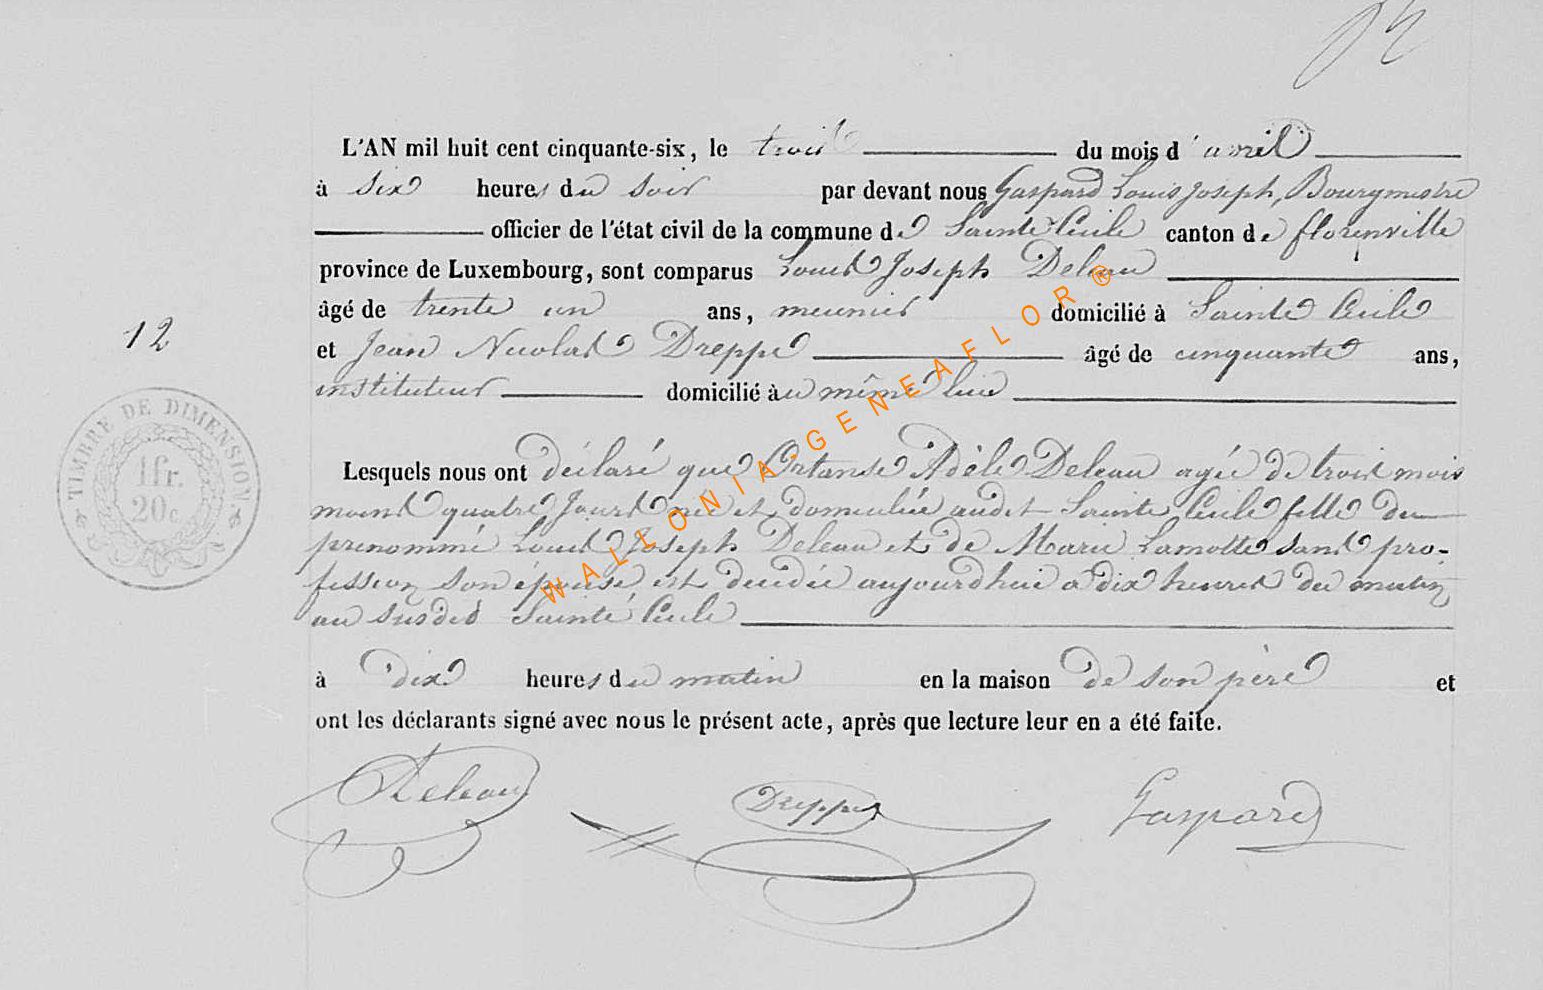 L'AN mil huit cent cinquante-six, le trois du mois d'avril
à six heures du soir par devant nous Gaspard Louis Joseph, Bourgmestre
officier de l'état civil de la commune de Sainte Cécile canton de florenville
province de Luxembourg, sont comparus Louis Joseph Deleau
âgé de trente un ans, meunier domicilié à Sainte Cécile
12
et Jean Nicolas Dreppe âgé de cinquante ans,
instituteur domicilié au même lieu
TIMBRE DE DIMENSION
1 fr.
20 c.
Lesquels nous ont déclaré que Ortanse Adèle Deleau agée de trois mois
moins quatre jours née et domiciliée audit Sainte Cécile fille du
prénommé Louis Joseph Deleau et de Marie Lamotte sans pro-
fession son épouse est décédée aujourdhui a dix heures du matin
au susdit Sainte Cécile
à dix heures du matin en la maison de son père et
ont les déclarants signé avec nous le présent acte, après que lecture leur en a été faite.
Deleau Dreppe Gaspard
WALLONIA-GENEAFLOR®